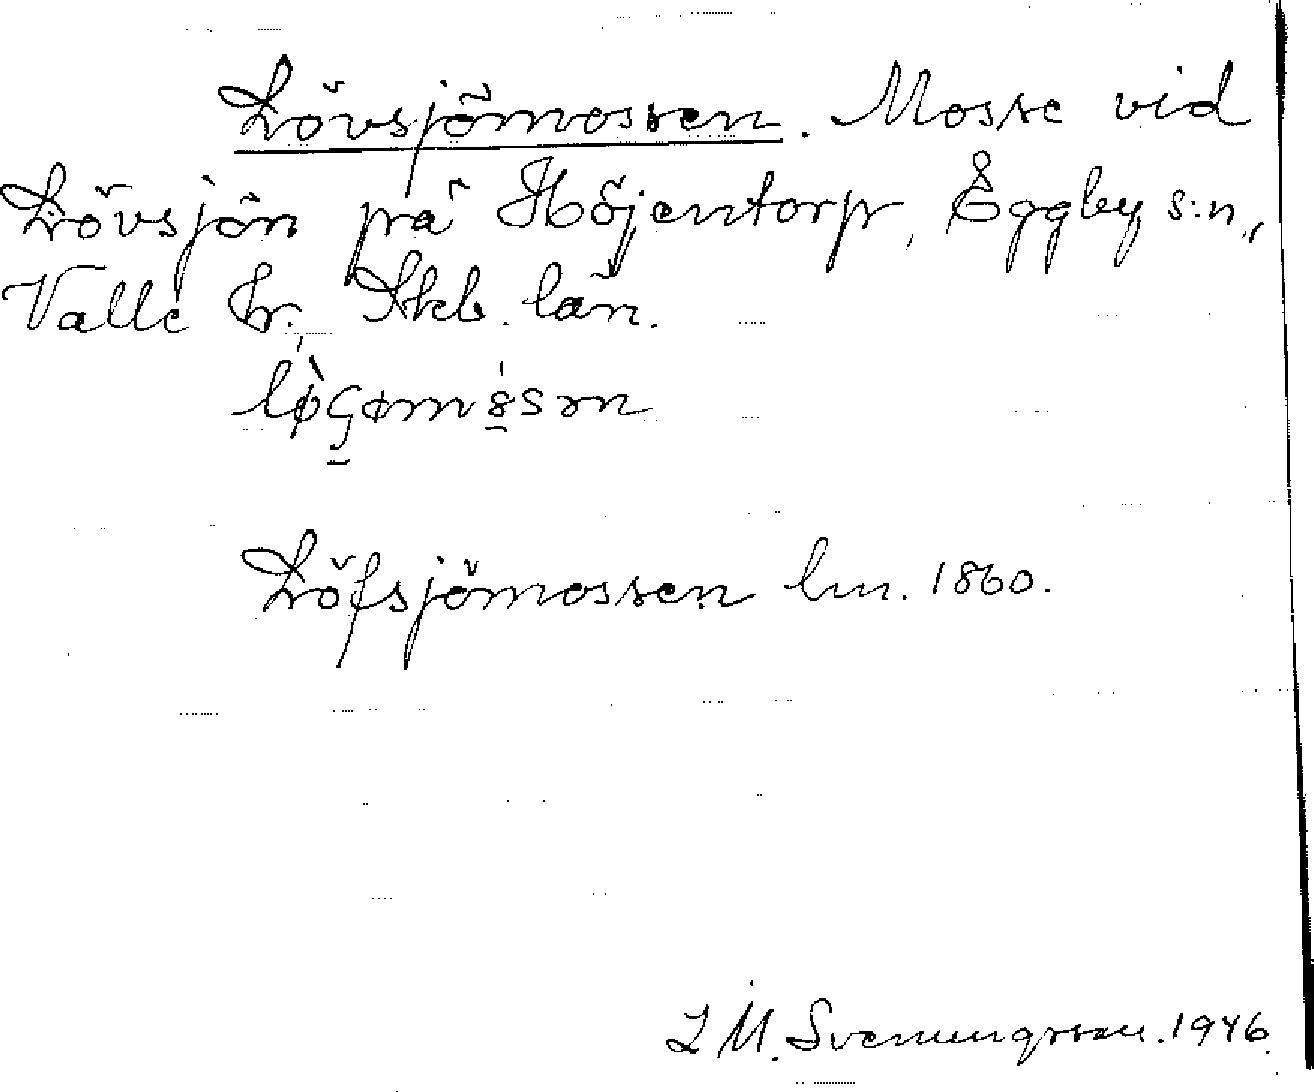 Lövsjömossen. Mosse vid
Lövsjön på Höjentorp, Eggby s:n,
Valle hr. Skb. län.
Löfsjömossen lm. 1860.
L M. Svenungsson. 1946.